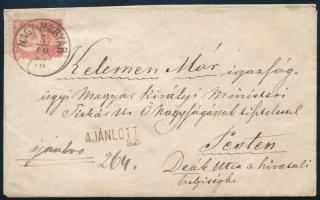 NAGY-MAGYAR
5
10
Kelemen Mór igazság-
ügyi Magyar királyi Ministeri
Titkár Úr Ő Nagyságának tisztelettel
AJÁNLOTT
SZ.
Pesten
ajánlva
264.
Deák utcza a hivatali
helyiségbe